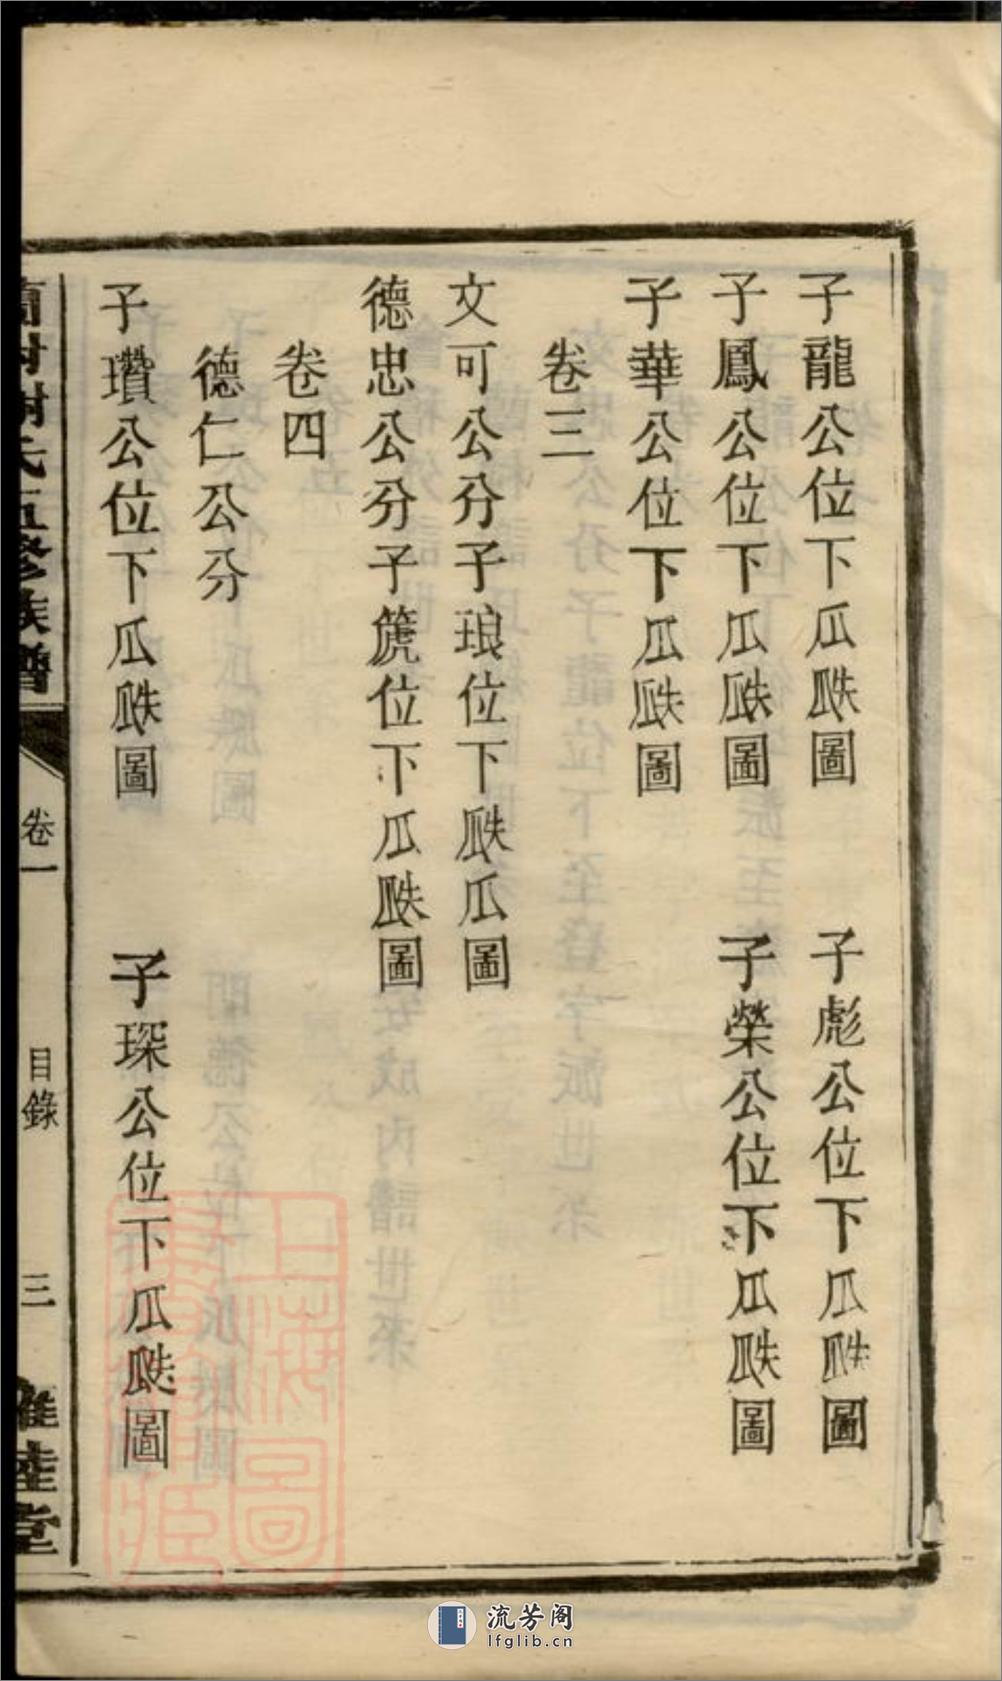 子龍公位下瓜瓞圖　子彪公位下瓜瓞圖
子鳳公位下瓜瓞圖　子榮公位下瓜瓞圖
子華公位下瓜瓞圖
卷三
文可公分子琅位下瓞瓜圖
德忠公分子篪位下瓜瓞圖
卷四
德仁公分
子瓚公位下瓜瓞圖　子琛公位下瓜瓞圖
氏五修族譜
卷一
目錄
三
睦堂
上海圖書館藏
流芳阁
lfglib.cn